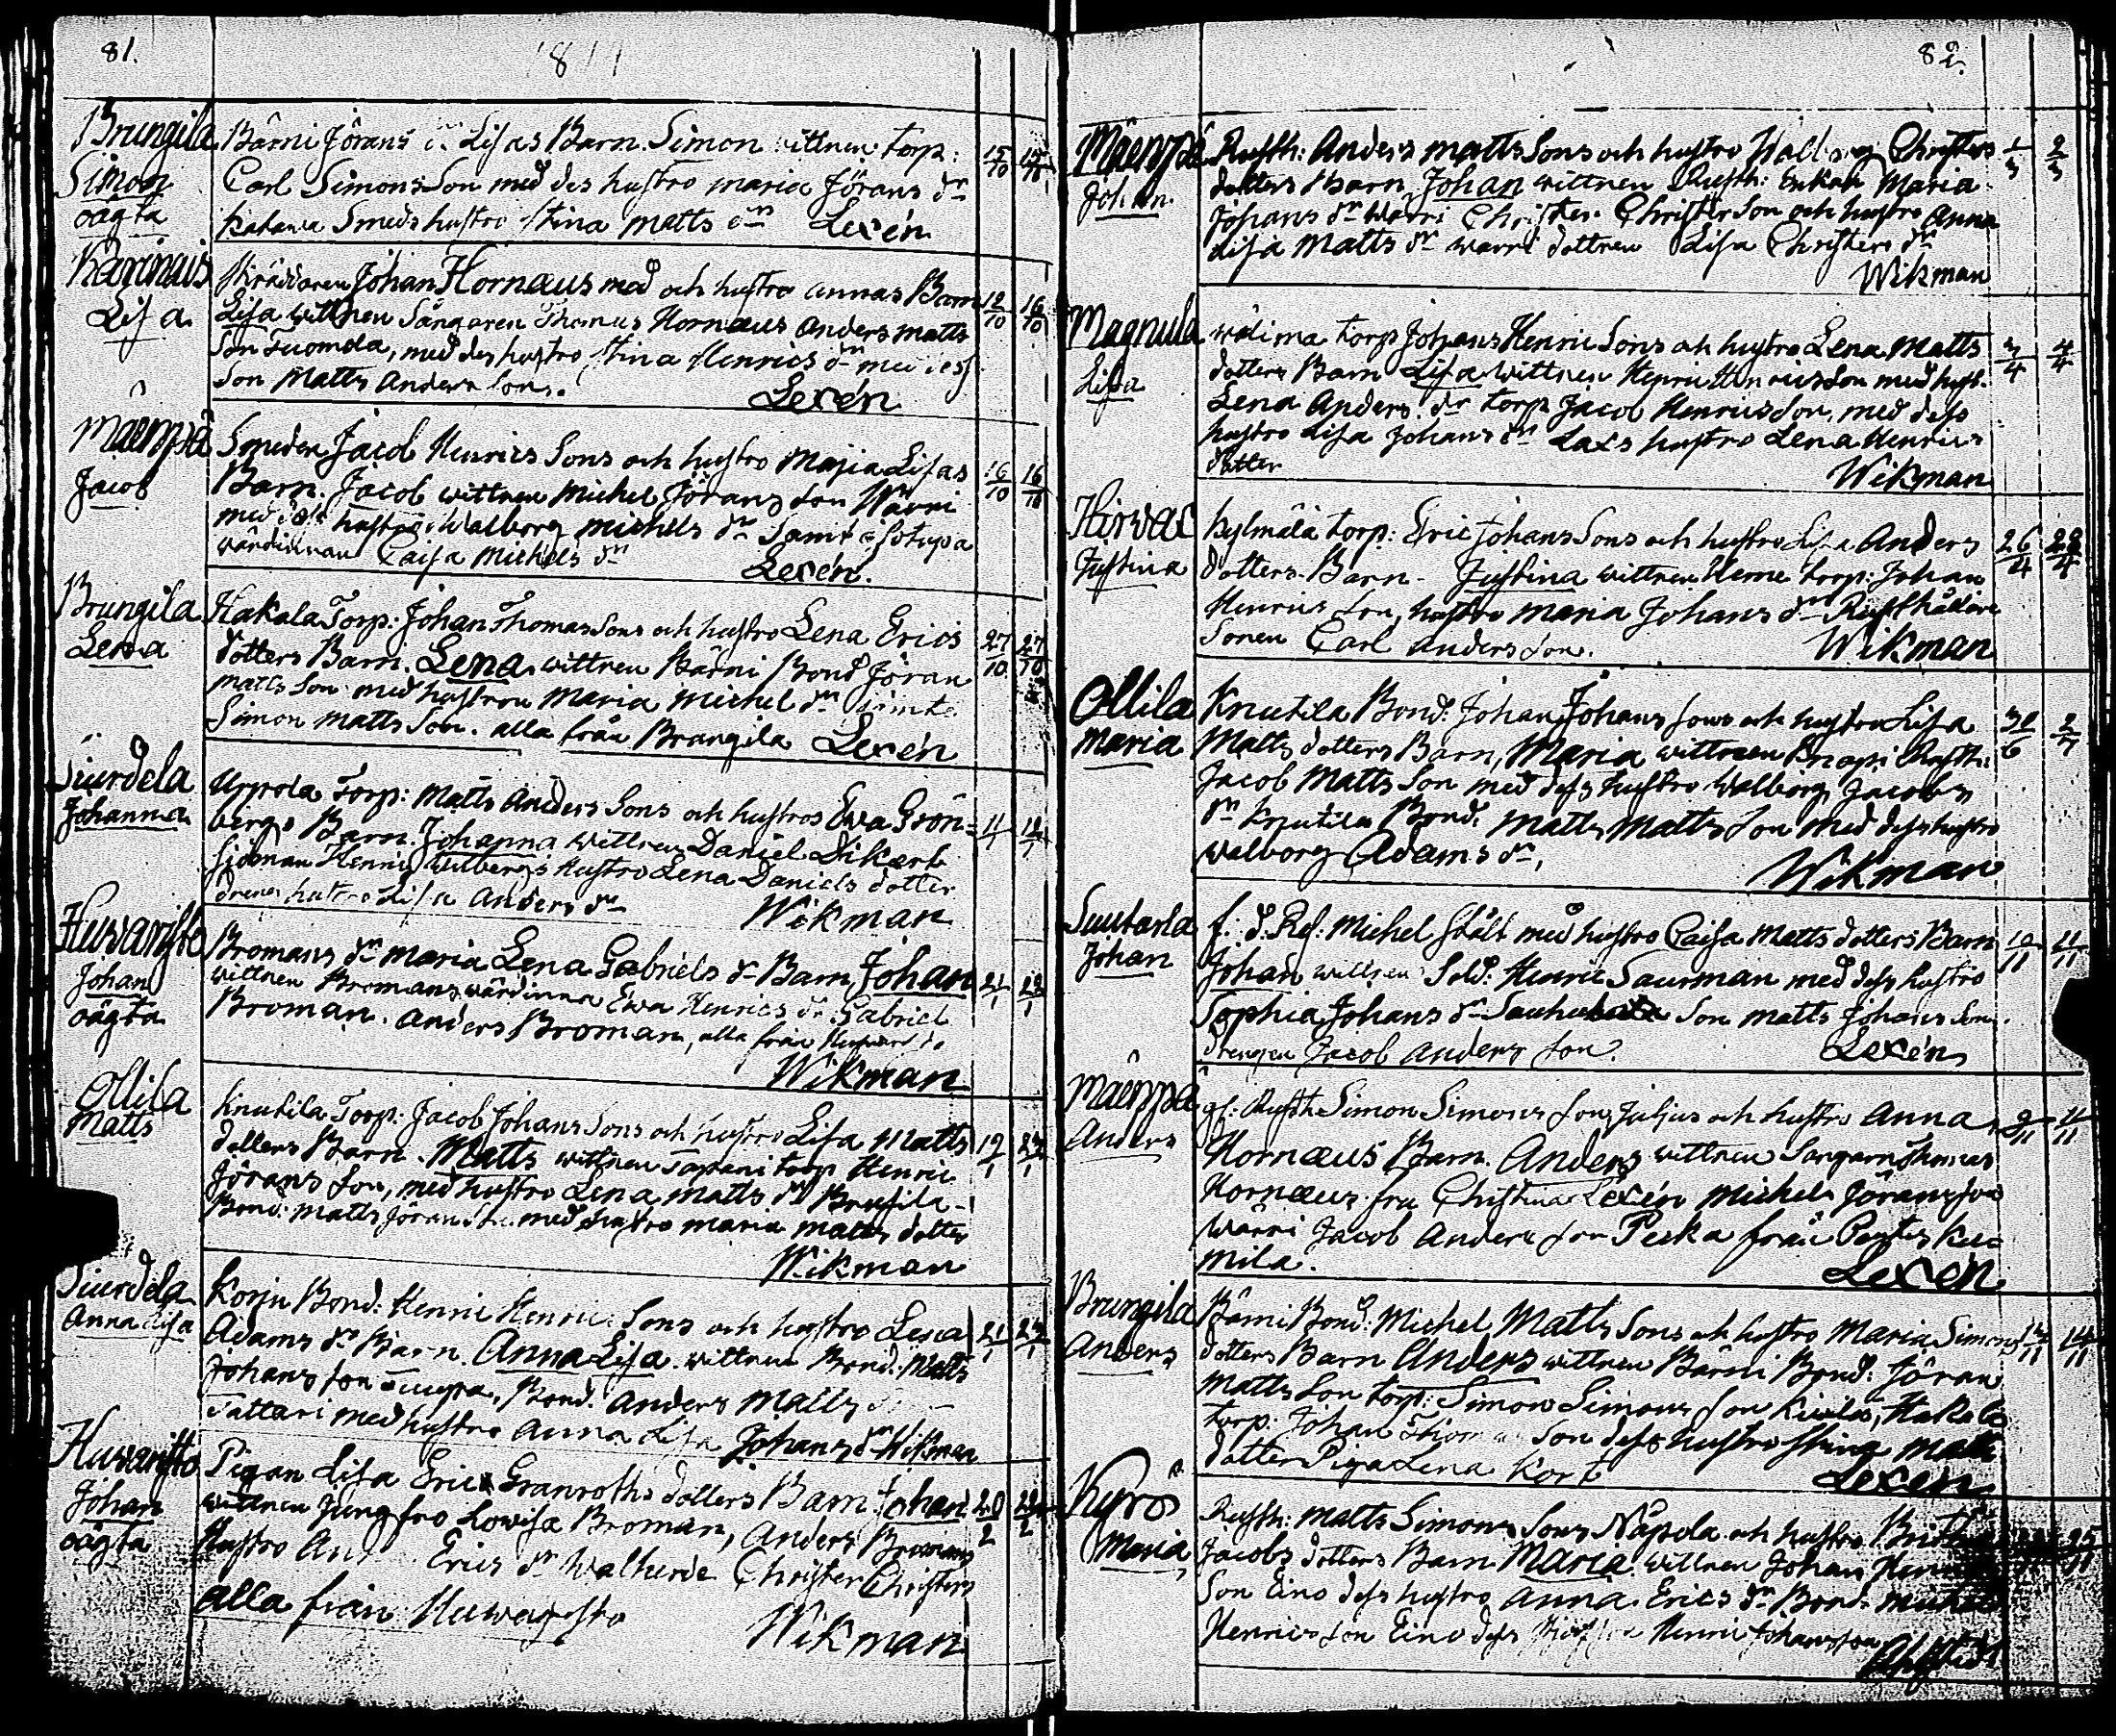 81.
1811
Brungila
Simon
oägta
Bärni Jörans dr Lisas Barn. Simon wittnen torp:
Carl Simons Son med des hustro maria Jörans dr
Smeds hustro Stina matts dr Lexén
15/10 15/10
Karinais
Lisa
Skräddaren Johan Hornæus med och hustro annas Barn
Lisa wittnen Sångaren Thomas Hornæus Anders matts
Son Tuomola, med des hustro Stina Henrics dr med dess
Son Matts Anders Son.
Lexén
12/10 16/10
Mäenpä
Jacob
Smeden Jacob Henrics Sons och hustro Maria Lisas
Barn. Jacob wittnen Michel Jörans Son Wärri
med des hustro Walborg michels dr Samt
wärdinnan Caisa Michels dr
Lexén.
16/10 16/10
Brungila
Lena
Hakala Torp: Johan Thomas Sons och hustro Lena Erics
dotters Barn. Lena wittnen Bärni Bond Jöran
matts Son med hustron Maria Michel dr Samt
Simon Matts Son. alla från Brungila Lexén
27/10 27/10
Siurdela
Johanna
Uppola Torp: Matts Anders Sons och hustros Ewa Grön=
bergs Barn. Johanna wittnen Daniel Dikert
Sjöman Henric Witbergs Hustro Lena Daniels dotter
drengs hustro Lisa Anders dr
Wikman
11/1 12/1
Huwaristo
Johan
oägta
Bromans dr maria Lena Gabriels dr Barn Johan
wittnen Bromans wärdinna Ewa Henrics dr Gabriel
Broman. Anders Broman, alla från
Wikman
21/1 22/1
Ollila
Matts
Knutila Torp: Jacob Johans Sons och hustro Lisa Matts
dotters Barn. Matts wittnen Tapani torp Henric
Jörans Son, med hustro Lena matts dr
Bond: Matts Jörans Son med hustro maria matts dotter
Wikman
19/1
Siurdela
Anna Lisa
Korju Bond: Henric Henrics Sons och hustro Lena
Adams dr Barn. Anna Lisa. wittnen Bond: Matts
Johans Son Bond. Anders Matts
Tattari med hustro Anna Lisa Johans dr Wikman
21/1
Huwaristo
Johan
oägta
Pigan Lisa Eric Granroths dotters Barn Johan
wittnen Jungfro Lowisa Broman, Anders Bromans
Hustro Erics dr Christer Christers
alla från Huwaristo
Wikman
20/2
82.
Mäenpä
Johan
Rusth: Anders matts Sons och hustro Walborg Christers
dotters Barn Johan wittnen Rusth: Enkan Maria
Johans dr Wärri Christer Christer Son och hustro Anna
Lisa Matts dr Wärri dottren Lisa Christers dr
Wikman
1/3 2/3
Magnula
Lisa
Wälima torp Johans Henric Sons och hustro Lena Matts
dotters Barn Lisa wittnen Henric Henrics Son med hust.
Lena Anders dr torp Jacob Henrics Son, med dess
hustro Lisa Johans dr Lars hustro Lena Henrics
dotter
Wikman
3/4 4/4
Hirwas
Justina
Kylmälä torp: Eric Johans Sons och hustro Lisa Anders
dotters Barn. Justina wittnen Torp: Johan
Henrics Son, hustro Maria Johans dr Rusthållare
Sonen Carl Anders Son.
Wikman
26/4 28/4
Ollila
maria
Knutila Bond: Johan Johans Sons och hustro Lisa
Matts dotters Barn, Maria wittnen Knapi Rusth:
Jacob Matts Son med dess hustro Walborg Jacobs
dr Knutila Bond: Matts Matts Son med dess hustro
Walborg Adams dr,
Wikman
30/6 2/7
Suutarla
Johan
f: d: Res: Michel Stålt med hustro Caisa Matts dotters Barn
Johan wittnen Sold: Henric Saurman med dess hustro
Sophia Johans dr Son matts Johans Son
drengen Jacob Anders Son.
Lexén
10/11 11/11
Mäenpä
Anders
gl: Rusth Simon Simons Son Juljus och hustro Anna
Hornæus Barn. Anders wittnen Sangaren Thomas
Hornæus fru Christina Lexén Michel Jörans Son
Wärri Jacob Anders Son Peska från
mila.
Lexén
9/11 11/11
Brungila
Anders
Bärni Bond: Michel Matts Sons och hustro Maria Simons
dotters Barn Anders wittnen Bärni Bond: Jöran
Matts Son torp: Simon Simons Son Kivilä, Hakala
torp: Johan Thomas Son dess hustro Stina Matts
dotter Piga Lena Kort
Lexen
14/11 14/11
Kyrö
Maria
Rusth: Matts Simons Sons Näpola och hustro Britha
Jacobs dotters Barn Maria wittnen Johan Henrics
Son Eino dess hustro Anna Erics dr Bond: Michel
Henrics Son Eino dess Henric Johansson